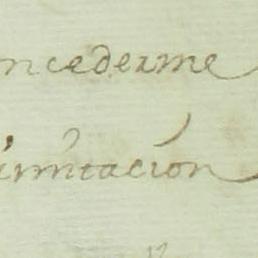 ncederme
imitación